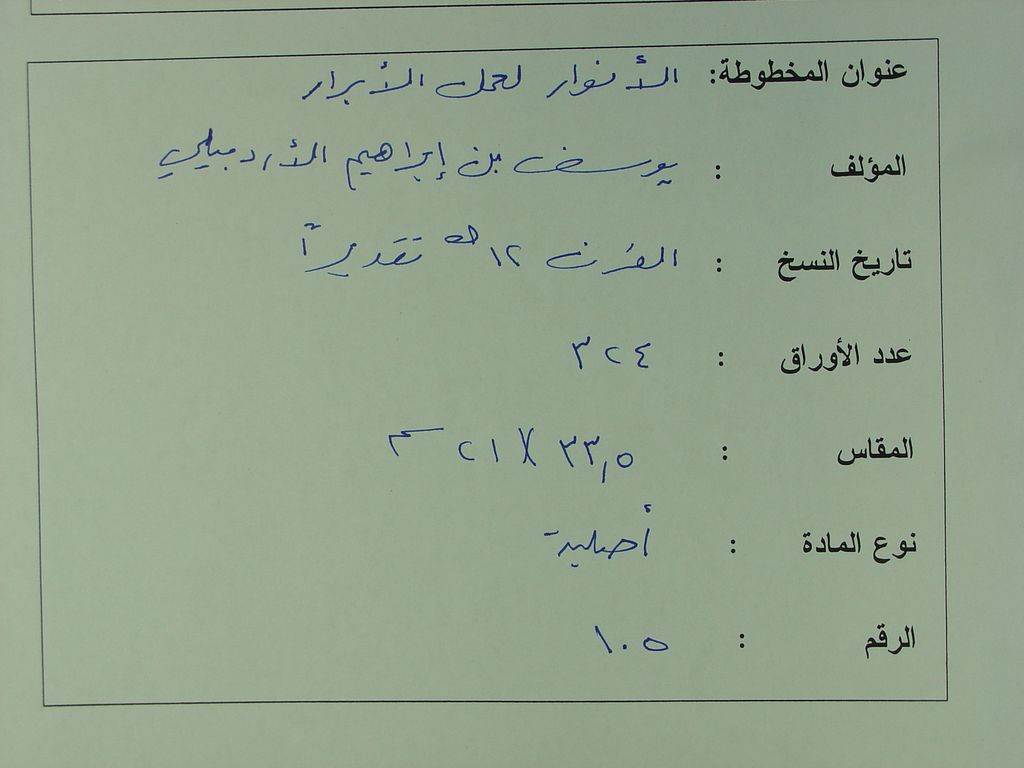 عنوان المخطوطة: الأنوار لعمل الأبرار
المؤلف : يوسف بن إبراهيم الأردبيلي
تاريخ النسخ : القرن ١٢هـ تقديراً
عدد الأوراق : ٣٢٤
المقاس : ٣٣,٥ X ٢١ سم
نوع المادة : أصلية
الرقم : ١٠٥